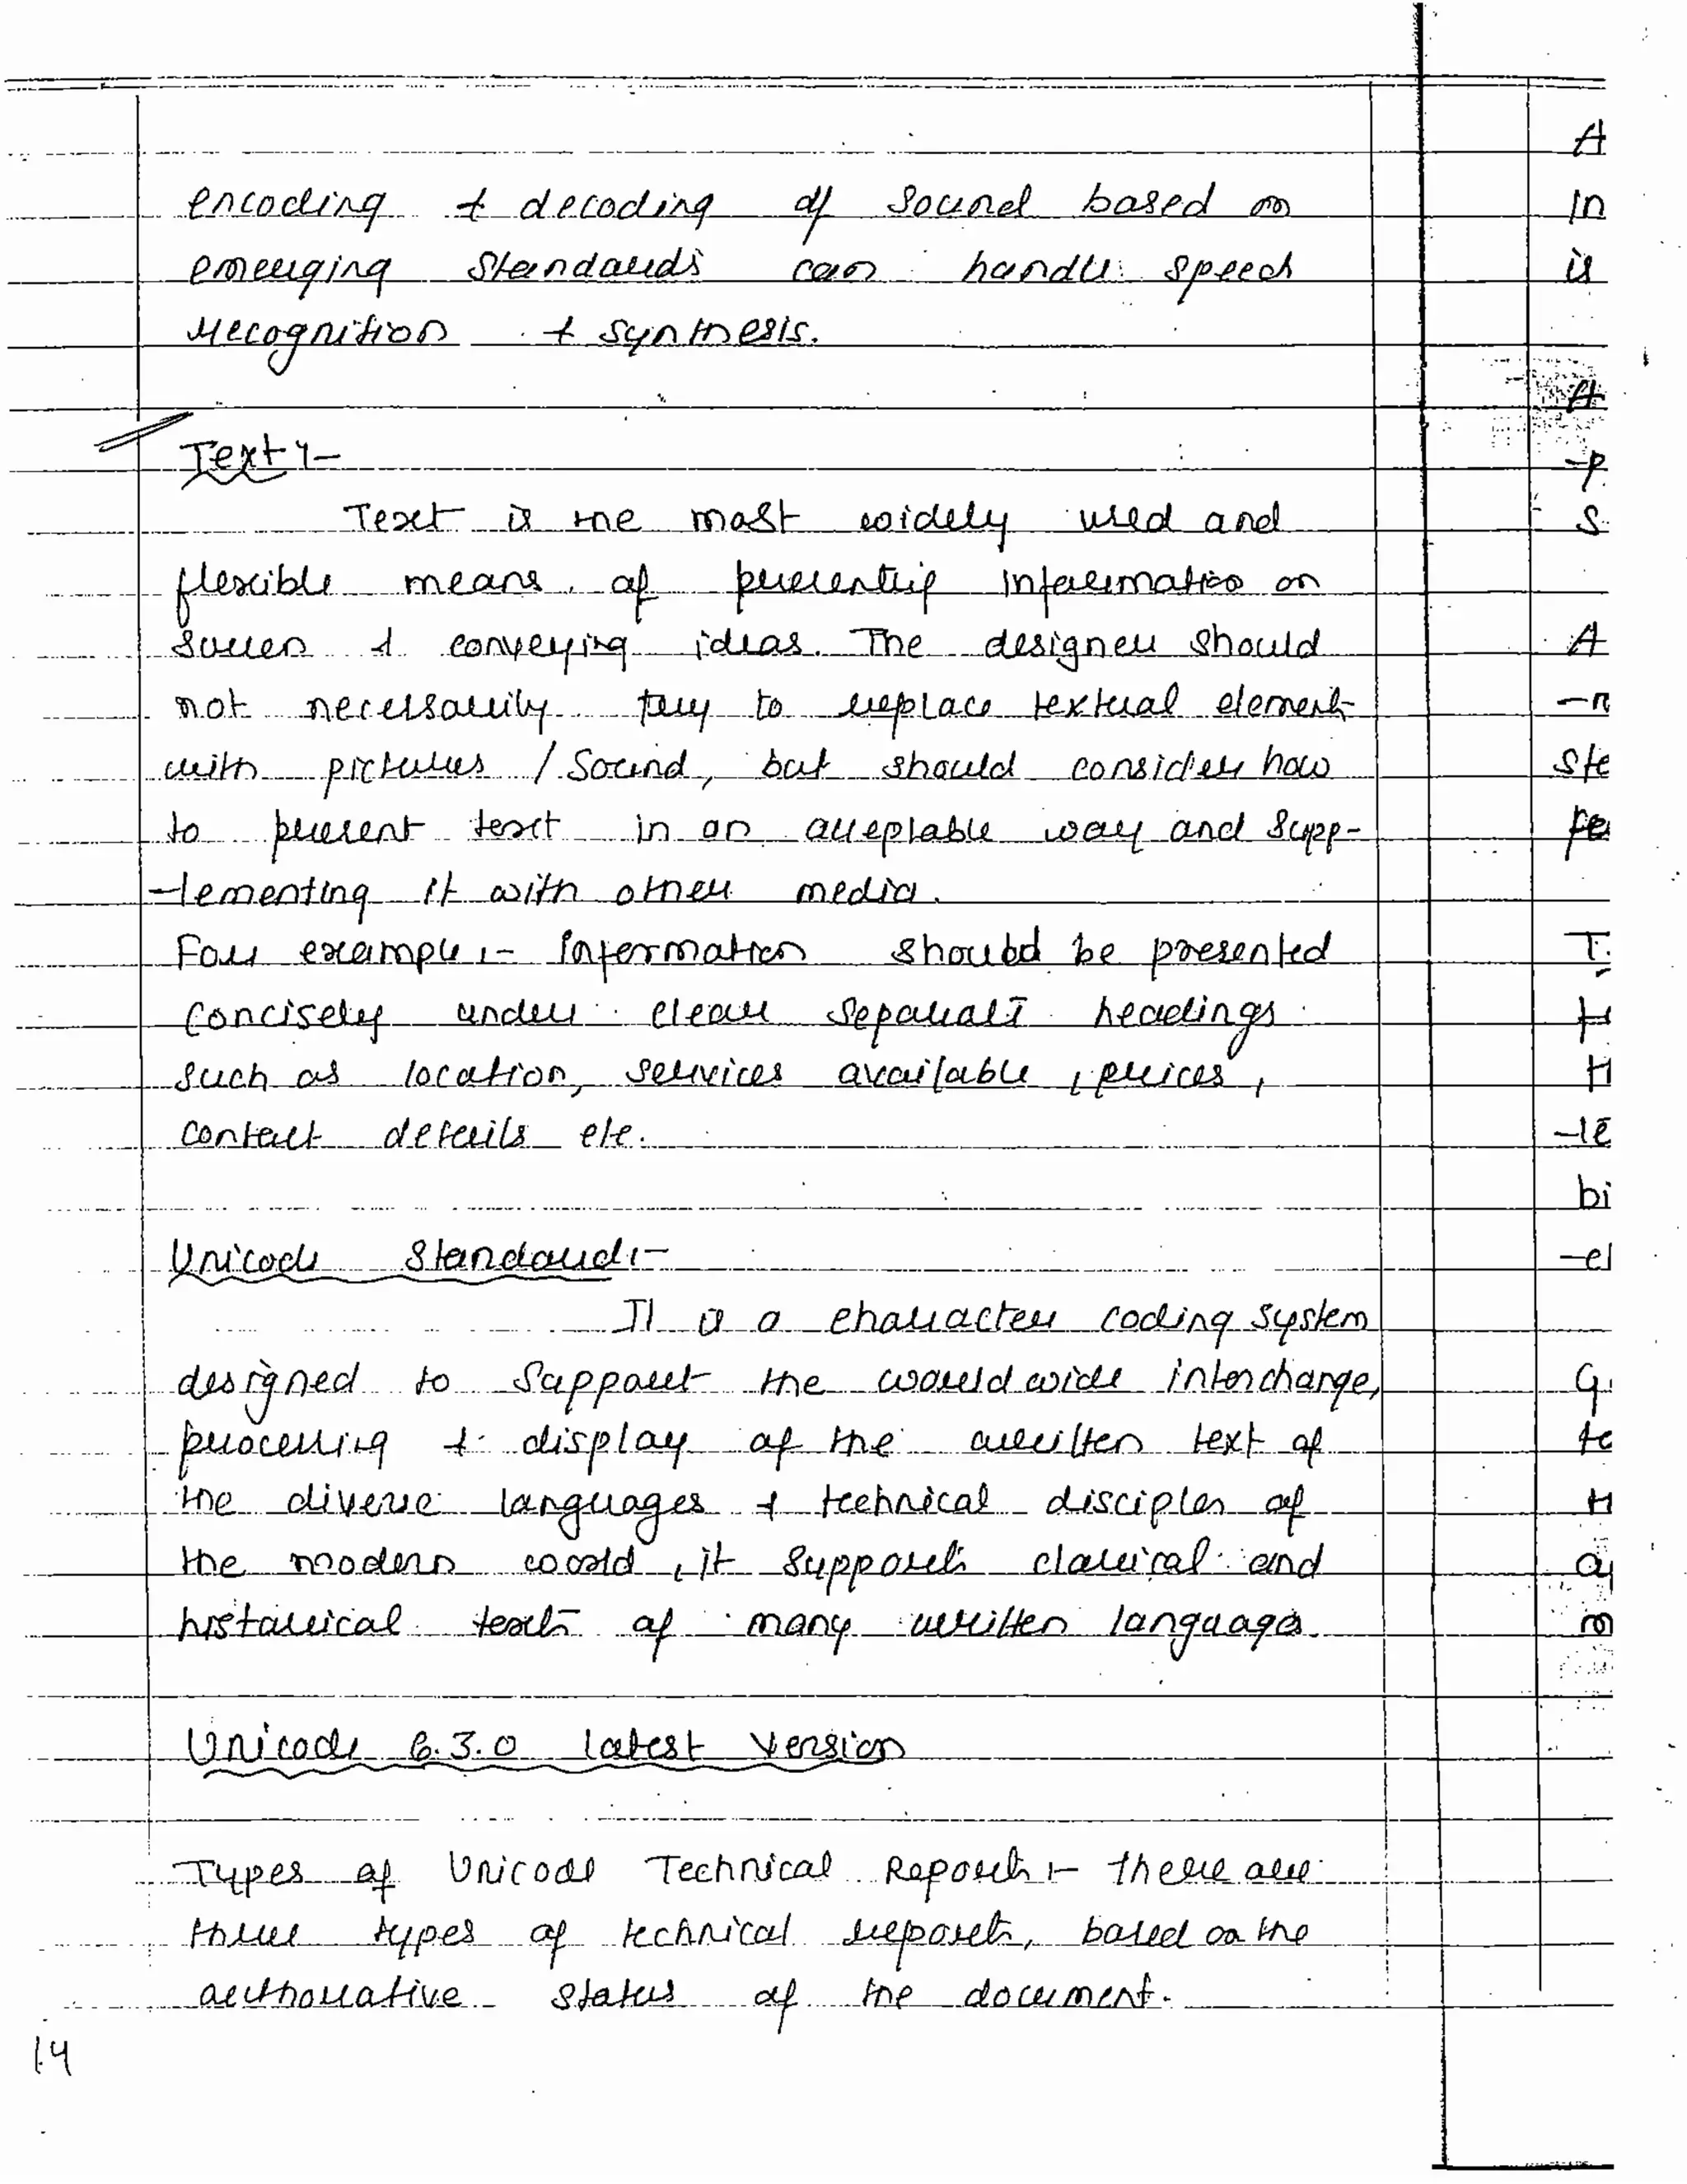 encoding & decoding of Sound based on
emerging standards can handle speech
recognition & synthesis.
Text :-
Text is the most widely used and
flexible means of presenting information on
screen & conveying ideas. The designer should
not necessarily try to replace textual element
with pictures / Sound, but should consider how
to present text in an acceptable way and supp-
-lementing it with other media.
For example :- Information should be presented
concisely under clear separate headings
such as location, services available, prices,
contact details etc.
Unicode Standard :-
It is a character coding system
designed to support the worldwide interchange,
processing & display of the written text of
the diverse languages & technical disciples of
the modern world, it supports classical and
historical texts of many written languages.
Unicode 6.3.0 latest Version
Types of Unicode Technical Reports :- There are
three types of technical reports, based on the
authorative status of the document.
14
A
In
is
A
-p
S
A
-n
Ste
fe
T
H
H
-le
bi
-el
G
te
H
a
m